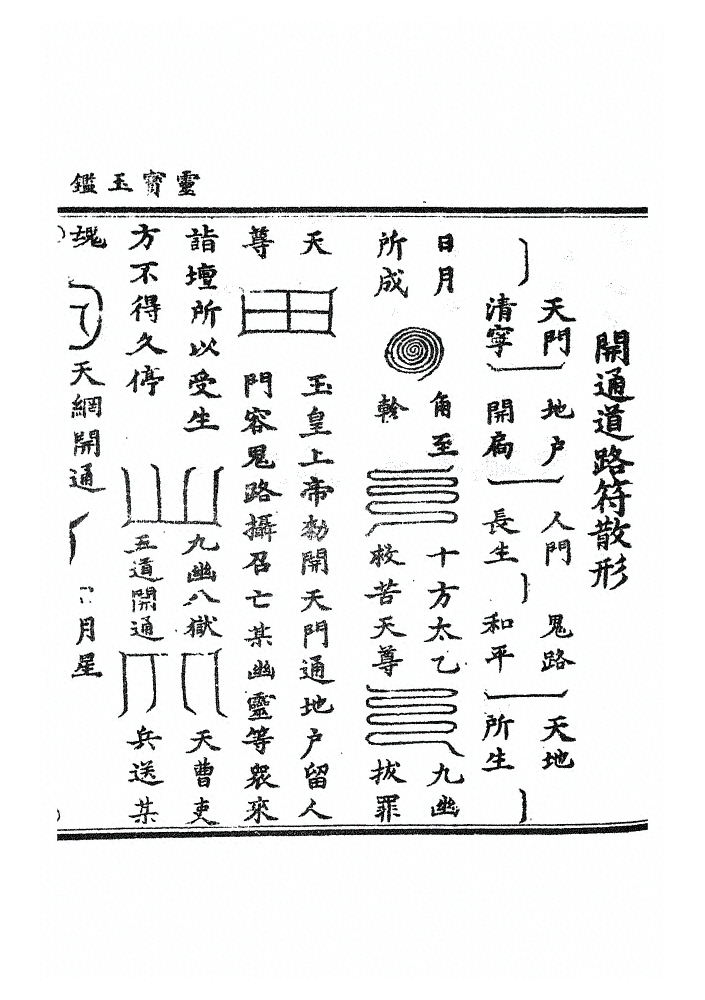 靈寳玉鑑
開通道路符散形
天門 地户 人門 鬼路 天地
清寧 開扃 長生 和平 所生
日月 角至 十方太乙 九幽
所成 斡 救苦天尊 拔罪
天 玉皇上帝勑開天門通地户留人
尊 門容鬼路攝召亡某幽靈等衆來
詣壇所以受生 九幽八獄 天曹吏
方不得久停 五道開通 兵送某
魂 天網開通 月星